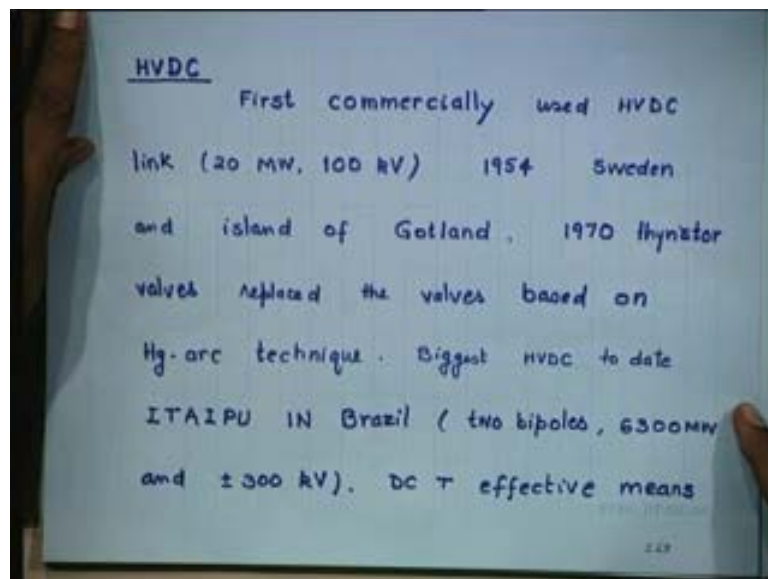 HVDC
First commercially used HVDC
link (20 MW, 100 kV) 1954 Sweden
and island of Gotland. 1970 thyristor
valves replaced the valves based on
Hg-arc technique. Biggest HVDC to date
ITAIPU IN Brazil (two bipoles, 6300MW
and ± 300 kV). DC T effective means